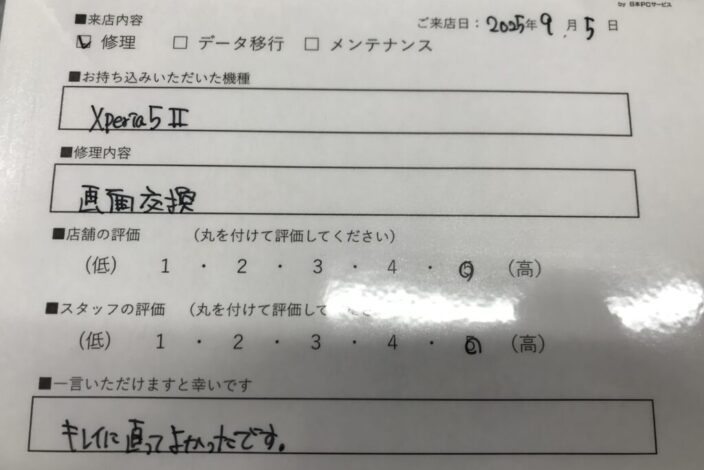 by 日本PCサービス
■来店内容
ご来店日：2025年9月5日
☑ 修理 □ データ移行 □ メンテナンス
■お持ち込みいただいた機種
Xperia5Ⅱ
■修理内容
画面交換
■店舗の評価 （丸を付けて評価してください）
（低） 1 ・ 2 ・ 3 ・ 4 ・ 5 （高）
■スタッフの評価 （丸を付けて評価して
（低） 1 ・ 2 ・ 3 ・ 4 ・ 5 （高）
■一言いただけますと幸いです
キレイに直ってよかったです。